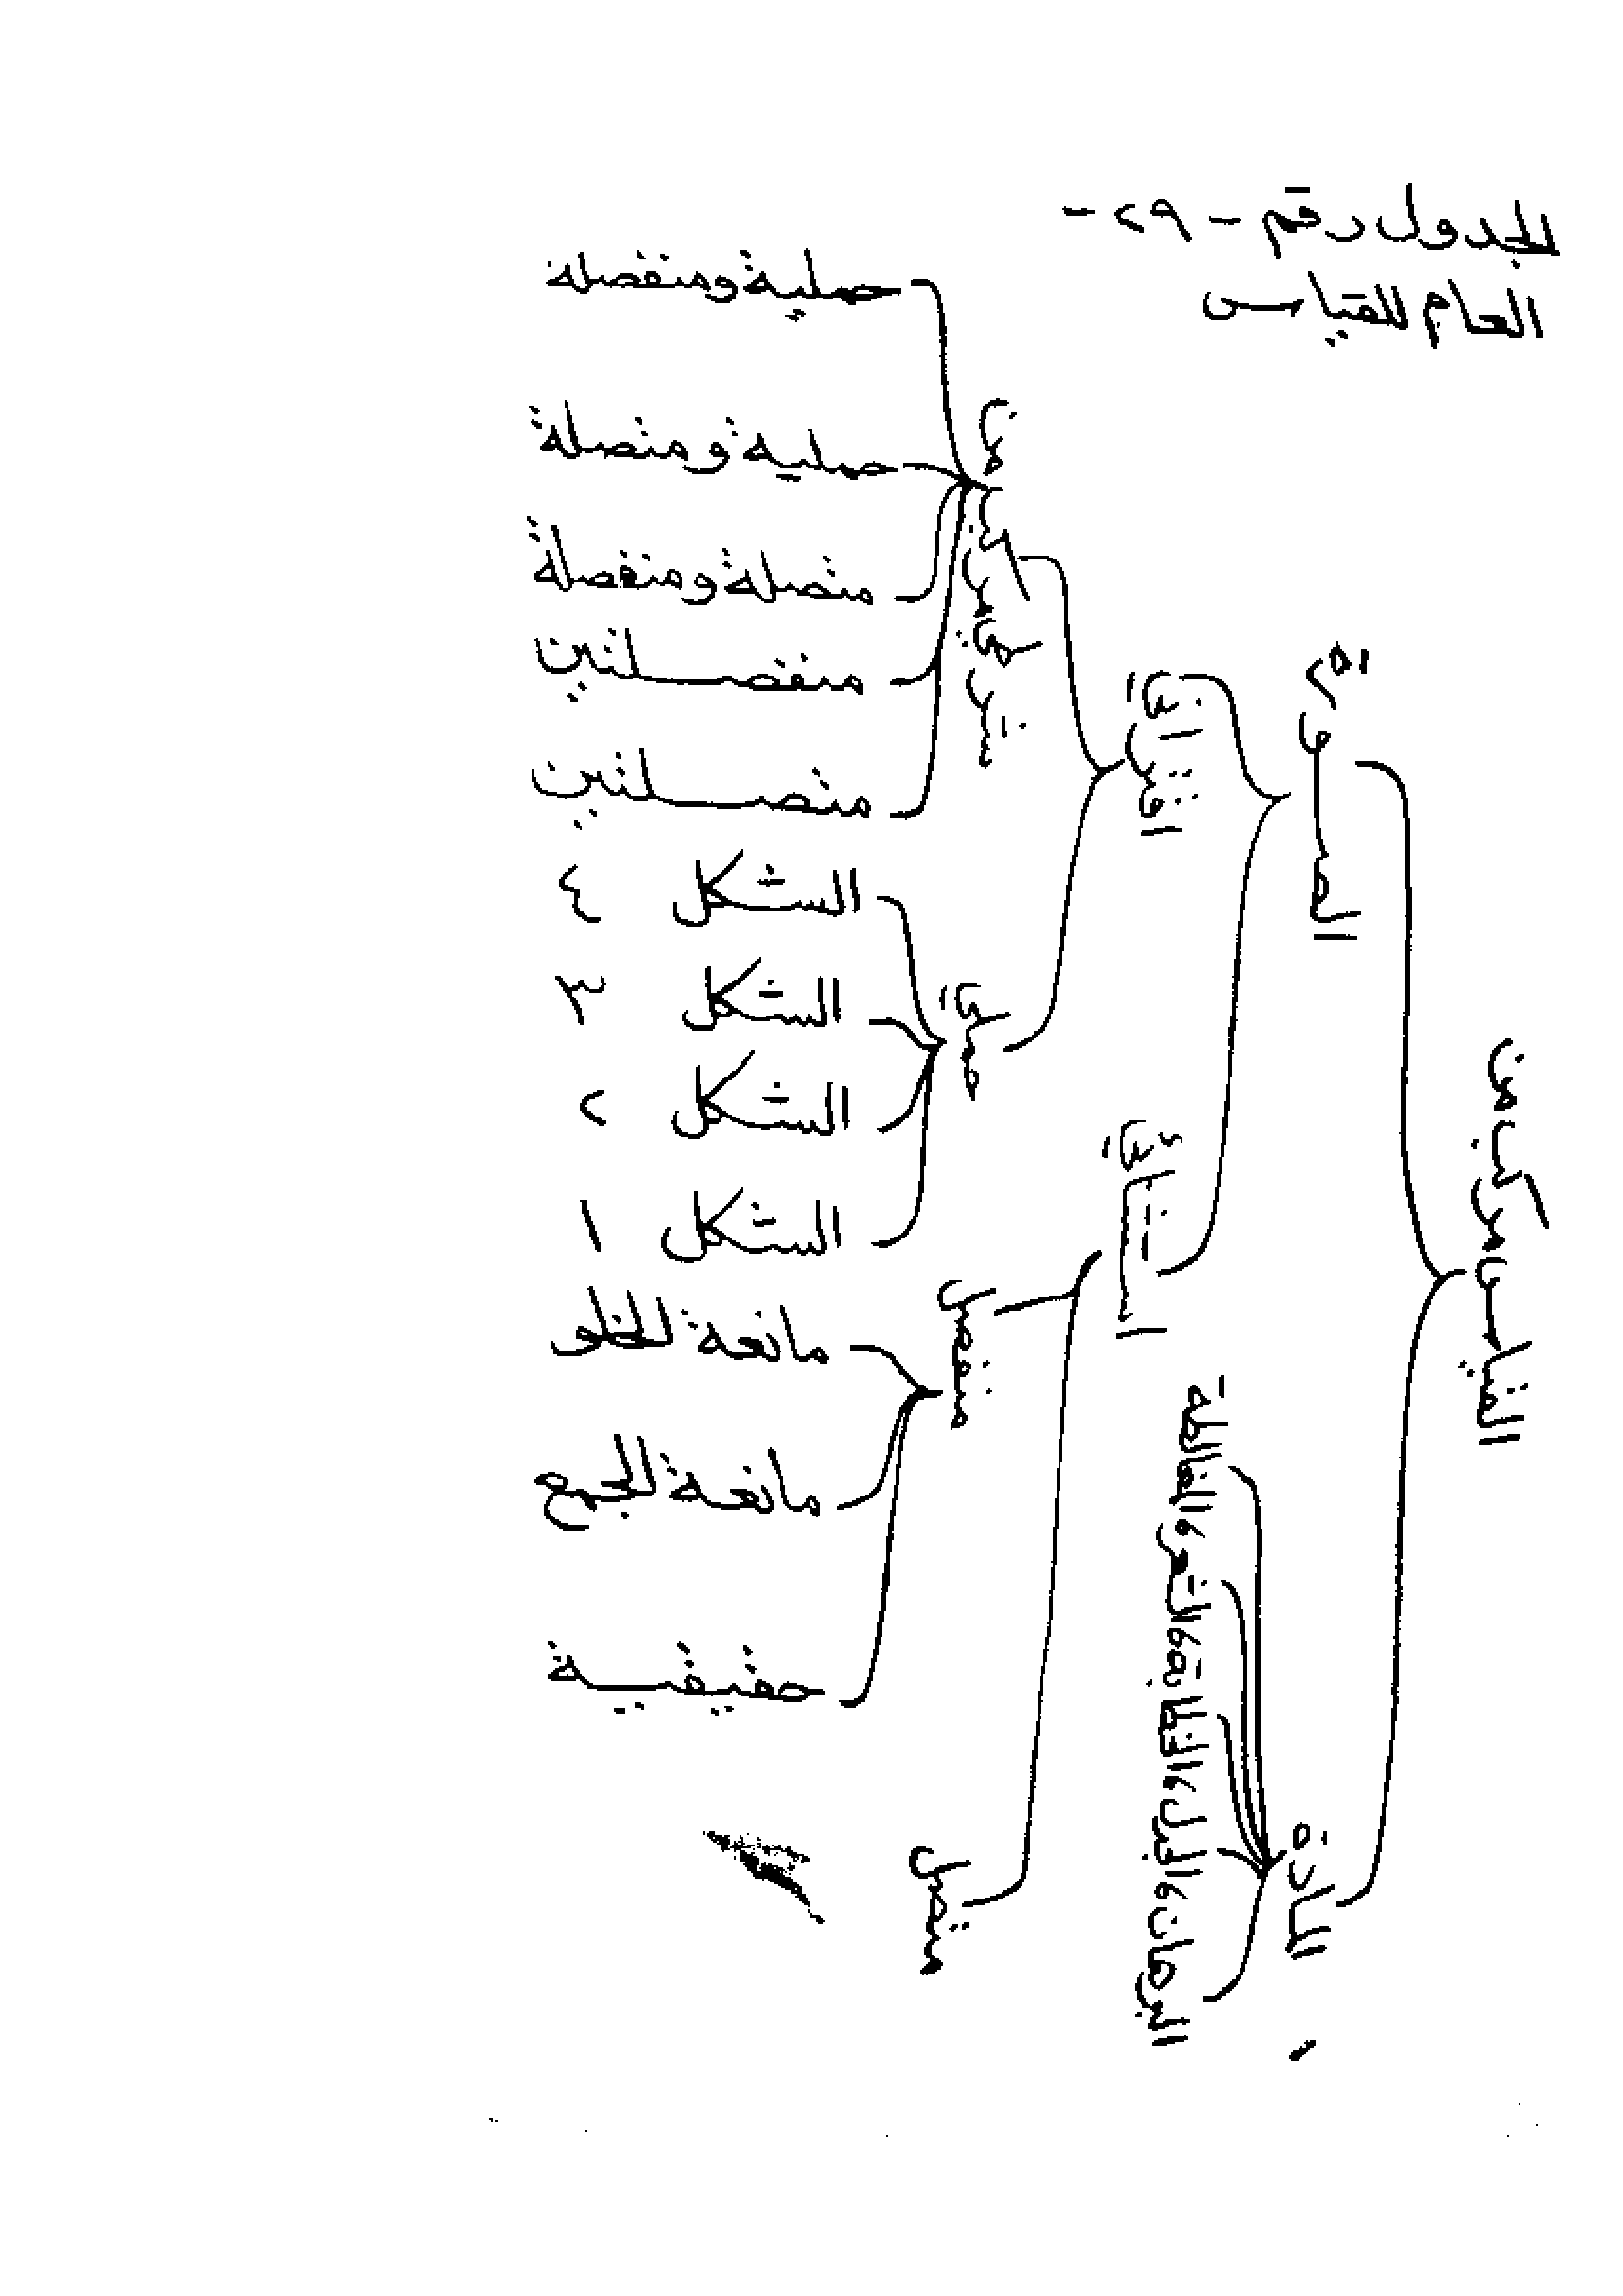 الجدول رقم - ٢٩ -
العام للقياس
القياس مركب من
الصورة
اقتراني
شرطي مركب من
حملية ومنفصلة
حملية ومتصلة
متصلة ومنفصلة
منفصلتين
متصلتين
حملي
الشكل ٤
الشكل ٣
الشكل ٢
الشكل ١
استثنائي
منفصل
مانعة الخلو
مانعة الجمع
حقيقية
متصل
المادة
البرهان، الجدل، الخطابة، الشعر، المغالطة